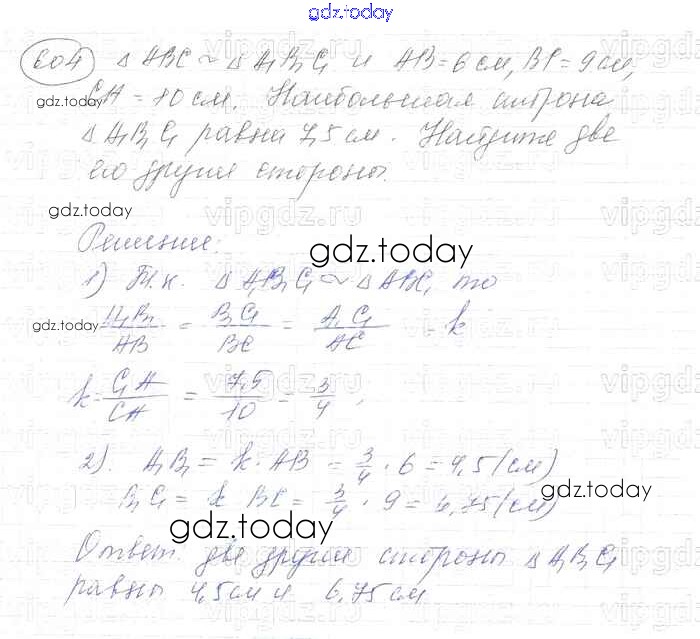 gdz.today
604 Δ ABC ~ Δ A₁B₁C₁ и AB = 6 см, BC = 9 см,
CA = 10 см. Наибольшая сторона
gdz.today
Δ A₁B₁C₁ равна 7,5 см. Найдите две
его другие стороны.
gdz.today
Решение:
gdz.today
1) Т.к. Δ A₁B₁C₁ ~ Δ ABC, то
A₁B₁/AB = B₁C₁/BC = A₁C₁/AC = k
gdz.today
k = C₁A/CA = 7,5/10 = 3/4,
2). A₁B₁ = k · AB = 3/4 · 6 = 4,5 (см)
B₁C₁ = k BC = 3/4 · 9 = 6,75 (см)
gdz.today
gdz.today
Ответ: две другие стороны Δ A₁B₁C₁
равны 4,5 см и 6,75 см
gdz.today